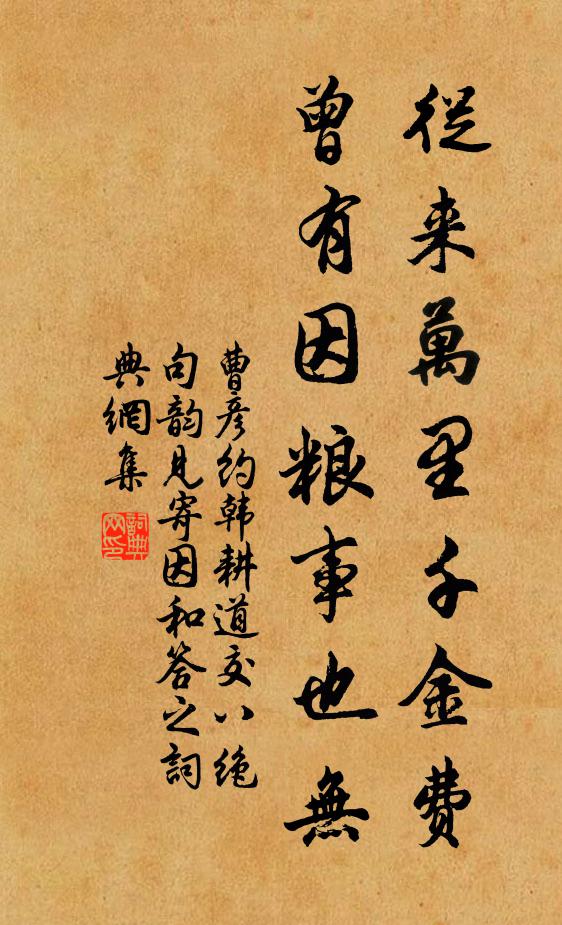 從来萬里千金費
曾有因粮事也無
曹彦约韩耕道交八绝
句韵见寄因和答之詞
典網集
詞典
网印